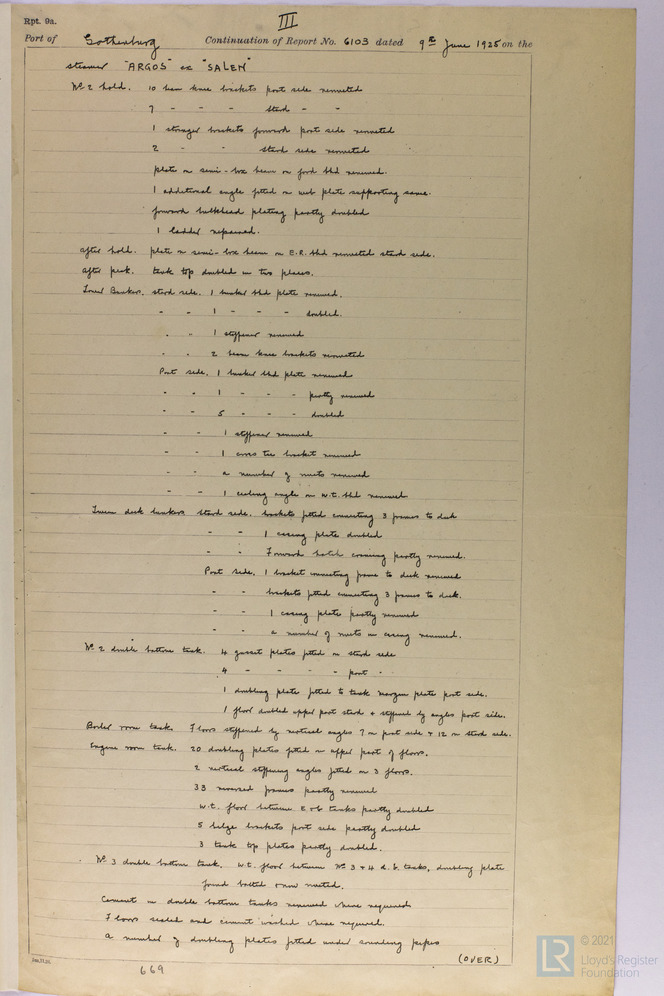 Rpt. 9a.
III
Port of Gothenburg Continuation of Report No. 6103 dated 9th June 1925 on the
steamer "ARGOS" ex "SALEM"
No 2 hold. 10 beam knee brackets port side reriveted
7 - - - stard - -
1 stronger brackets forward port side reriveted
2 - - stard side reriveted
plate on semi-box beam on ford bhd renewed.
1 additional angle fitted on web plate supporting same.
forward bulkhead plating partly doubled
1 ladder repaired.
after hold. plate on semi-box beam on E.R. bhd reriveted stard side.
after peak. tank top doubled in two places.
Lower Bunkers. stard side. 1 bunker bhd plate renewed.
- - 1 - - - doubled.
- - 1 stiffener renewed
- - 2 beam knee brackets reriveted
Port side. 1 bunker bhd plate renewed
- - 1 - - - partly renewed
- - 5 - - - doubled
- - 1 stiffener renewed
- - 1 cross tie bracket renewed
- - a number of rivets renewed
- - 1 angle on w.t. bhd renewed
Tween deck bunkers stard side. brackets fitted connecting 3 frames to deck
- - 1 casing plate doubled
- - Forward hatch coaming partly renewed.
Port side. 1 bracket connecting frame to deck renewed
- - brackets fitted connecting 3 frames to deck.
- - 1 casing plate partly renewed
- - a number of rivets in casing renewed.
No 2 double bottom tank. 4 gusset plates fitted on stard side
4 - - - - port -
1 doubling plate fitted to tank margin plate port side.
1 floor doubled upper part stard & stiffened by angles port side.
Boiler room tank. Floors stiffened by vertical angles 7 on port side & 12 on stard side.
Engine room tank. 20 doubling plates fitted on upper part of floors.
2 vertical stiffening angles fitted on 3 floors.
33 reversed frames partly renewed
w.t. floor between tanks partly doubled
5 bilge brackets port side partly doubled
3 tank top plates partly doubled.
No 3 double bottom tank. w.t. floor between No 3 & 4 d.b. tanks, doubling plate
found bolted & now riveted.
Cement in double bottom tanks renewed where required
Floors scaled and cement washed where required.
a number of doubling plates fitted under sounding pipes
(OVER)
669
© 2021
Lloyd's Register
Foundation